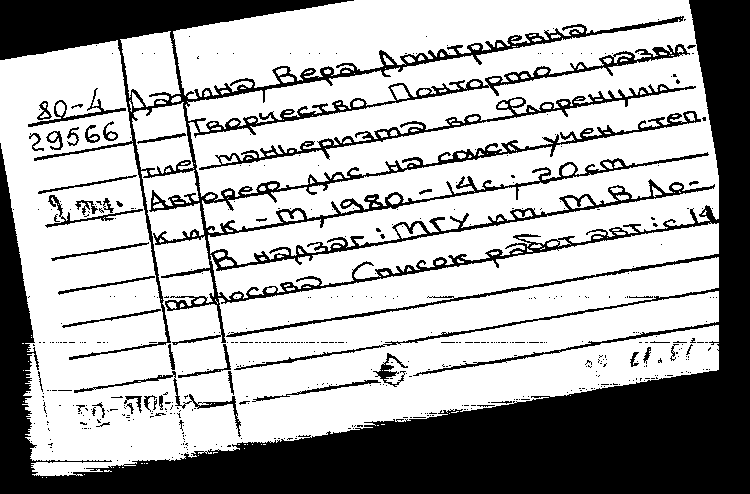 80-4
29566
2 экз.
Дажина, Вера Дмитриевна.
Творчество Понтормо и разви-
тие маньеризма во Флоренции:
Автореф. дис. на соиск. учен. степ.
к. иск. - М., 1980. - 14 с.; 20 см.
В надзаг.: МГУ им. М. В. Ло-
моносова. Список работ авт.: с. 14